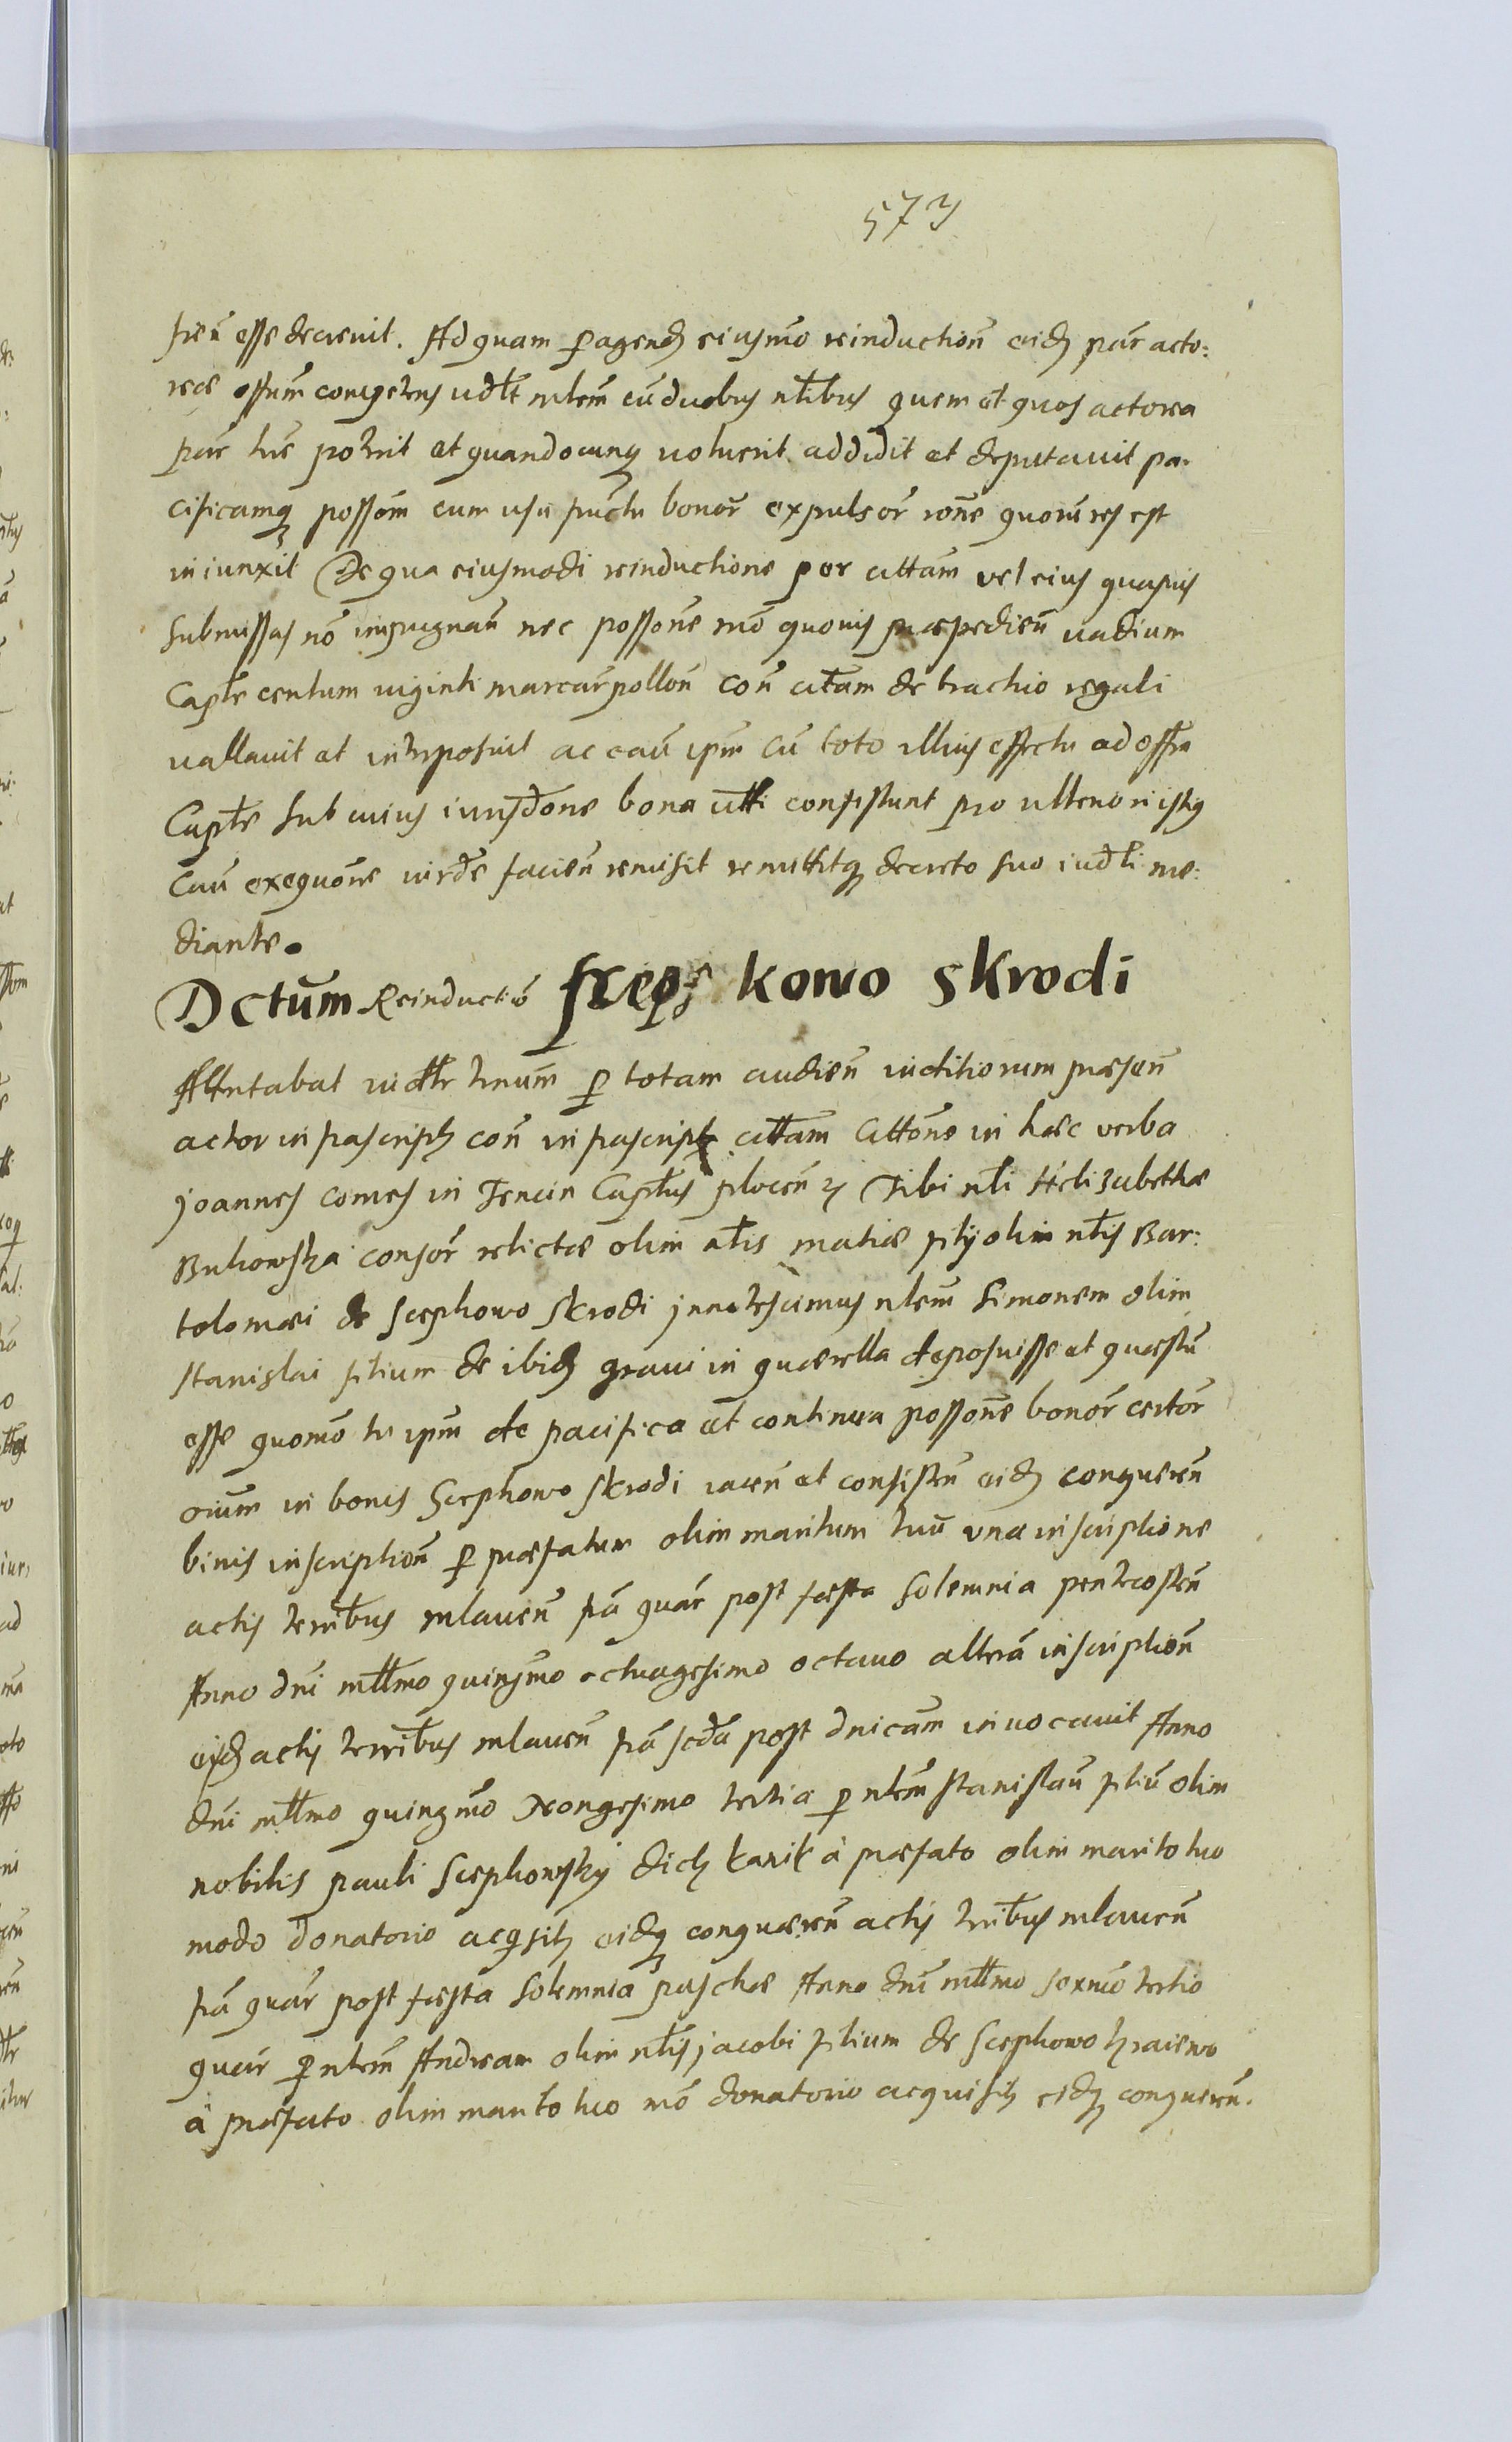 573
esse decrevit. Ad quam peragend eiusmo reinduction eid par acto:
reae offum competens udlt mlem cu duobus nlibus quem et quos actorea
par hre potuit et quandocunq voluerit addidit et deputavit pa.
cificamq possom cum usu fructu bonor expulsor rone quoru res est
iniunxit De qua eiusmodi reinductione per cittam vel eius quasvis
submissas no impugnan nec possone mo quovis praepedien vadium
Caplte centum viginti marcar pollon con citam de brachio regali
vallavit et interposuit ac cau ipm cu toto illius effectu ad offm
Caplte sub cuius iurisdone bona utti consistunt pro ulteriori istq
cau exequone inde facien remisit remittitq decreto suo iudli me:
diante.
Dctum Reinductio szep kowo skrodi
Attentabat iudltr trnum p totam audien iuditiorum praesen
actor infrascript con infrascript cittam Cittone in haec verba
joannes comes in Tencin Capltus plocen Tibi nli Helizabethae
Bukowska consor relictae olim nlis mathiae filij olim nlis Bar:
tolomaei de Scephowo skrodi innotescimus nlem Simonem olim
stanislai filium de ibid gravi in quaerella deposuisse et quaestu
esse quomo tu ipm de pacifica et continua possone bonor certor
oium in bonis Scephowo skrodi iacen et consisten eid conqueren
binis inscription p praefatum olim maritum tuu una inscriptione
actis terribus mlaven fa quar post faesta solemnia pentecosten
Anno dni mllmo quingmo octuagesimo octavo altera inscription
eisd actis terribus mlaven fa scda post dnicam invocavit Anno
dni mlllmo quingmo Nongesimo tertia p nlem stanislau filiu olim
nobilis pauli Scephowsky dict karik a praefato olim marito tuo
modo donatorio acqsit eidq conquaeren actis terribus mlaven
fa quar post faesta solemnia paschae Anno dni mlllmo sexmo tertio
quar p nlem Andream olim nlis jacobi filium de Scephowo
a praefato olim marito tuo mo donatorio acquisit eidq conqueren.